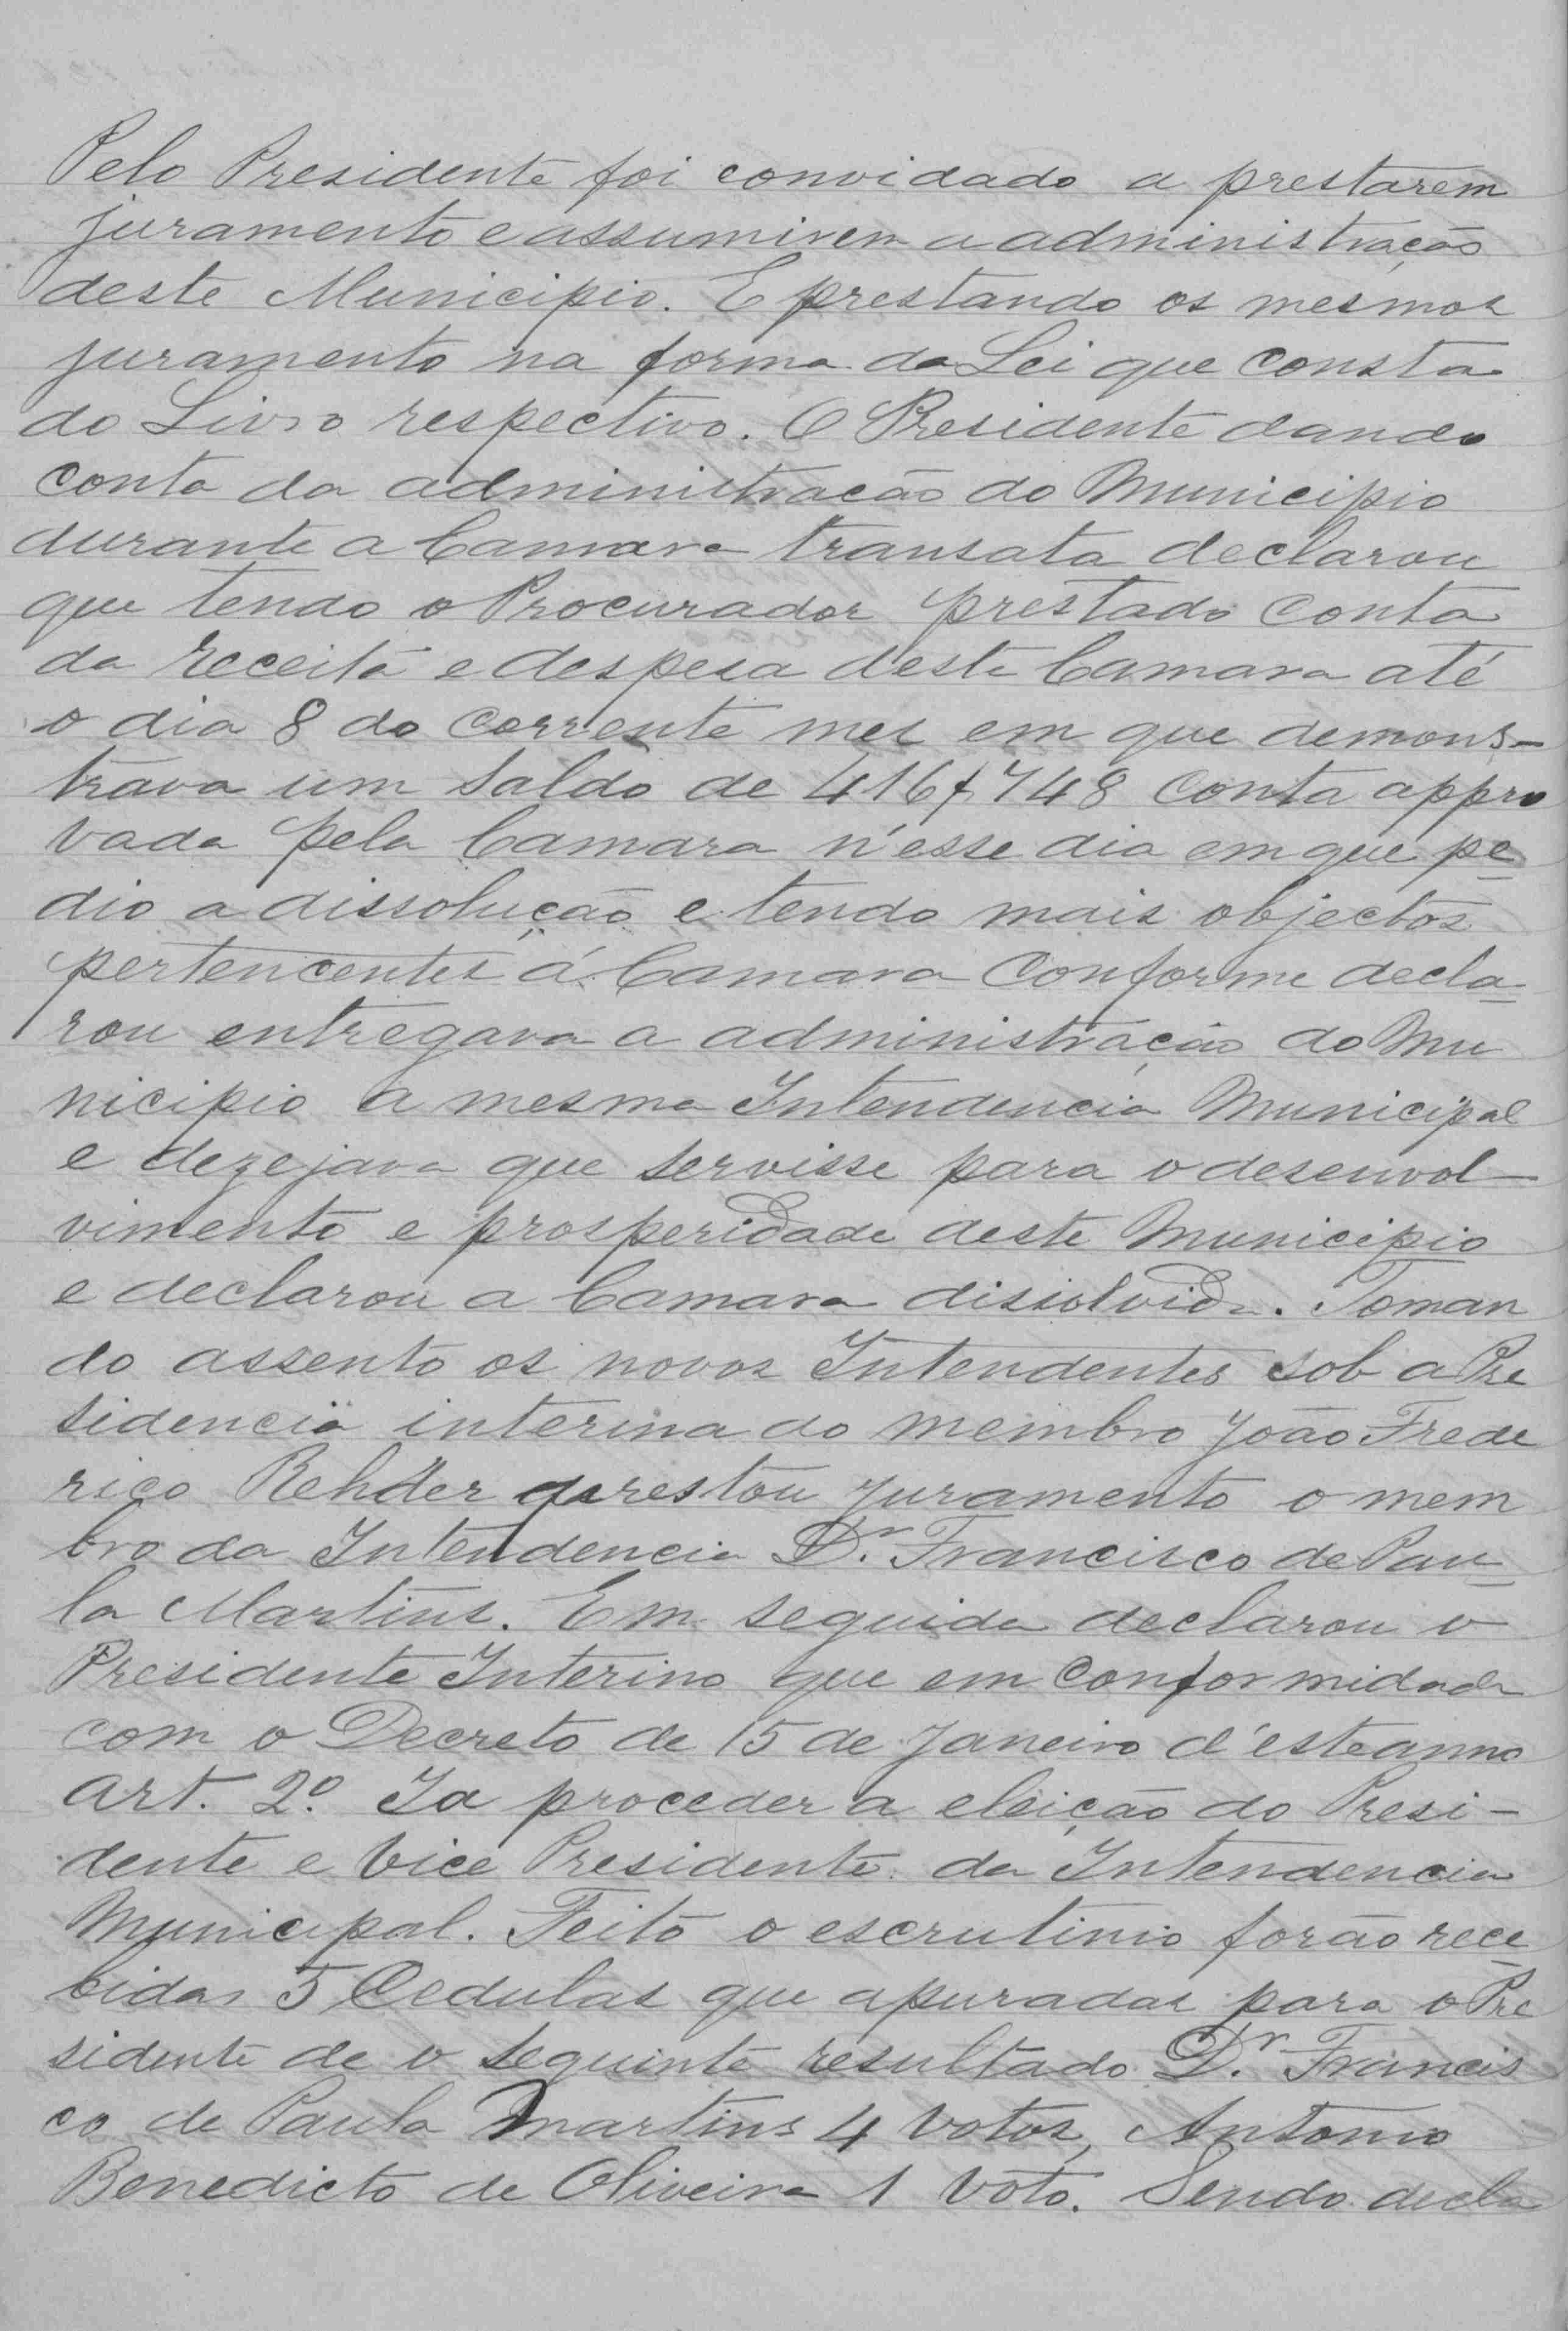 Pelo Presidente foi convidado a prestarem
juramento e assumirem a administração
deste Municipio. E prestando os mesmos
juramento na forma da Lei que consta
do Livro respectivo. O Presidente dando
conta da administração do Municipio
durante a Camara transata declarou
que tendo o Procurador prestado conta
da receita e despesa desta Camara até
o dia 8 do corrente mes em que demons-
trava um saldo de 416$748 conta appro
vada pela Camara n'esse dia em que pe
dio a dissolução e tendo mais objectos
pertencentes á Camara conforme decla-
rou entregava a administração do Mu
nicipio a mesma Intendencia Municipal
e dezejava que servisse para o desenvol-
vimento e prosperidade deste Municipio
e declarou a Camara disiolvida. Toman
do assento os novos Intendentes sob a Pre
sidencia interina do membro João Frede
rico Rehder prestou juramento o mem
bro da Intendencia Dr. Francisco de Pau-
la Martins. Em seguida declarou o
Presidente Interino que em conformidade
com o Decreto de 15 de Janeiro d'este anno
art. 2º. Ia proceder a eleição do Presi-
dente e Vice Presidente da Intendencia
Municipal. Feito o escrutinio forão rece
bidas 5 Cedulas que apuradas para o Pre
sidente de o seguinte resultado Dr. Francis
co de Paula Martins 4 votos, Antonio
Benedicto de Oliveira 1 voto. Sendo decla